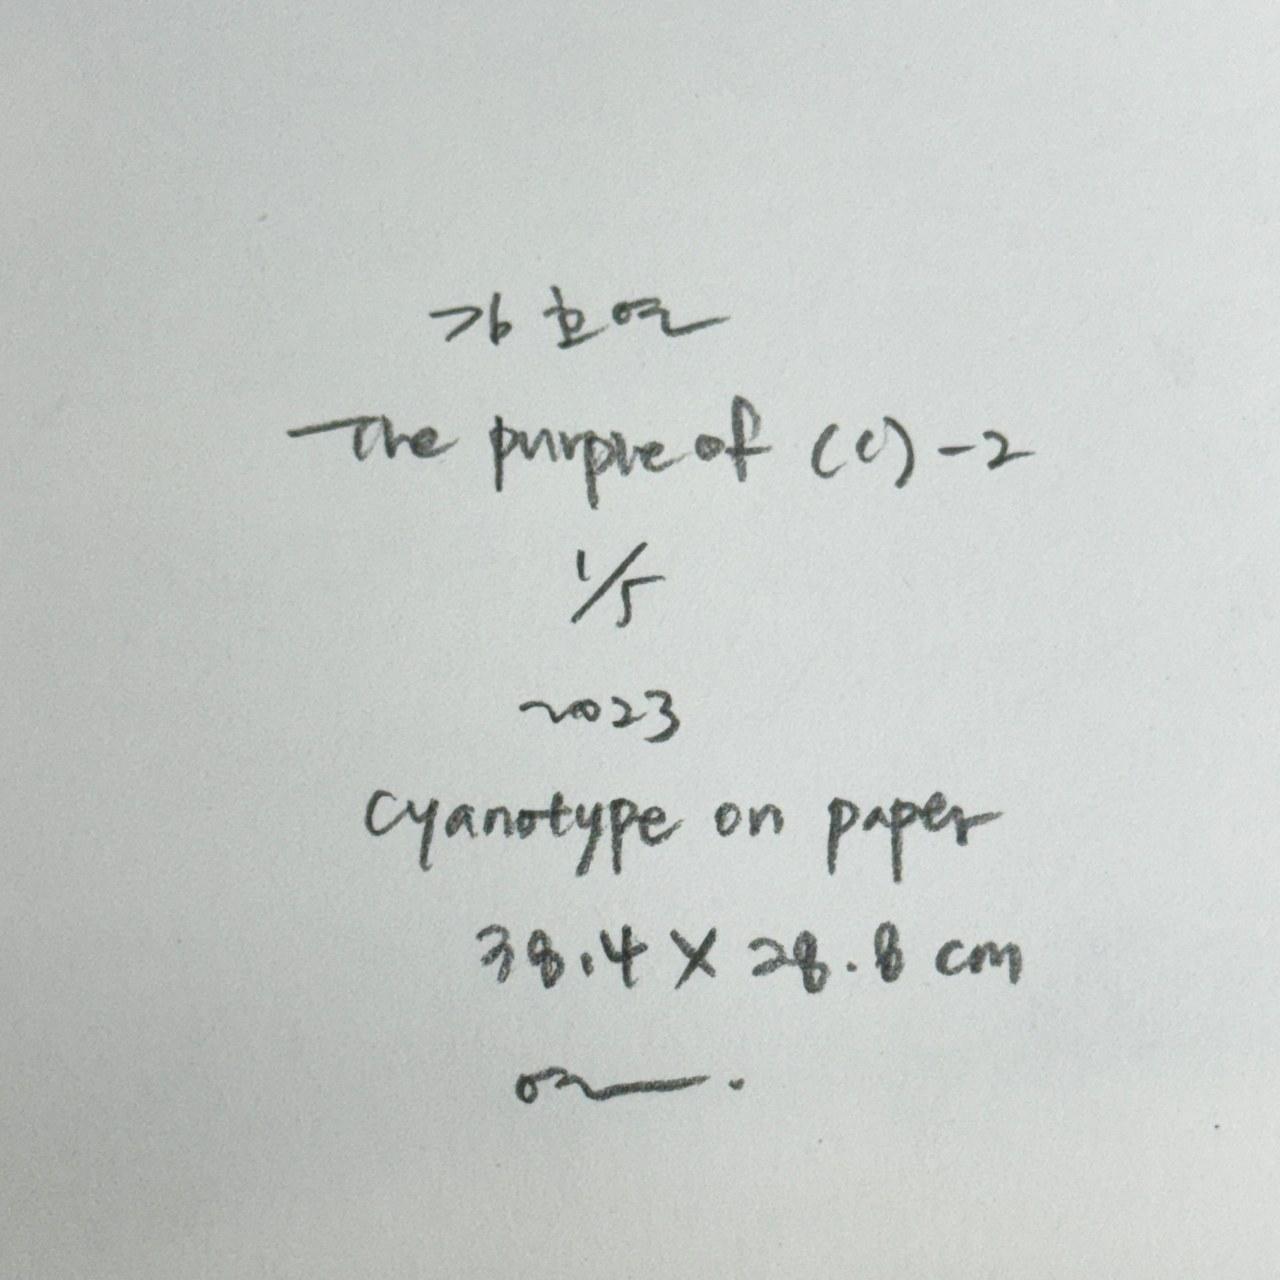 김호연
The purple of (c) - 2
1/5
2023
Cyanotype on paper
38.4 X 28.8 cm